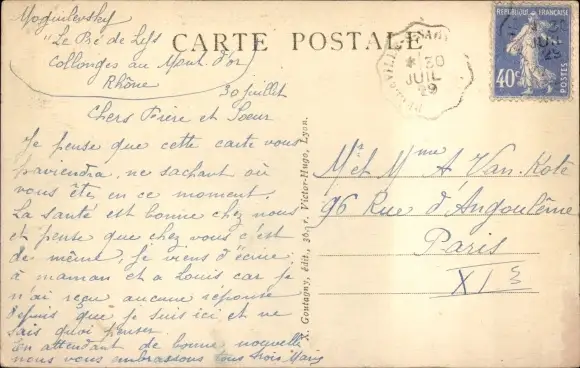 Moguilevsky
"Le Pré de Lys
Collonges au Mont d'or
Rhône
30 juillet
Chers Frère et Soeur
Je pense que cette carte vous
parviendra, ne sachant où
vous êtes en ce moment.
La santé est bonne chez nous
et pense que chez vous c'est
de même, je viens d'écrire
à maman et a Louis car je
n'ai reçu aucune réponse
depuis que je suis ici et ne
sais quoi penser.
En attendant de bonne nouvelle
nous vous embrassons tous trois
CARTE POSTALE
A. Goutagny, édit., 36, r. Victor-Hugo, Lyon.
30
JUIL
29
REPUBLIQUE FRANÇAISE
30
JUIL
29
40c
POSTES
Mr et Mme A Van. Kote
96 Rue d'Angoulême
Paris
XI